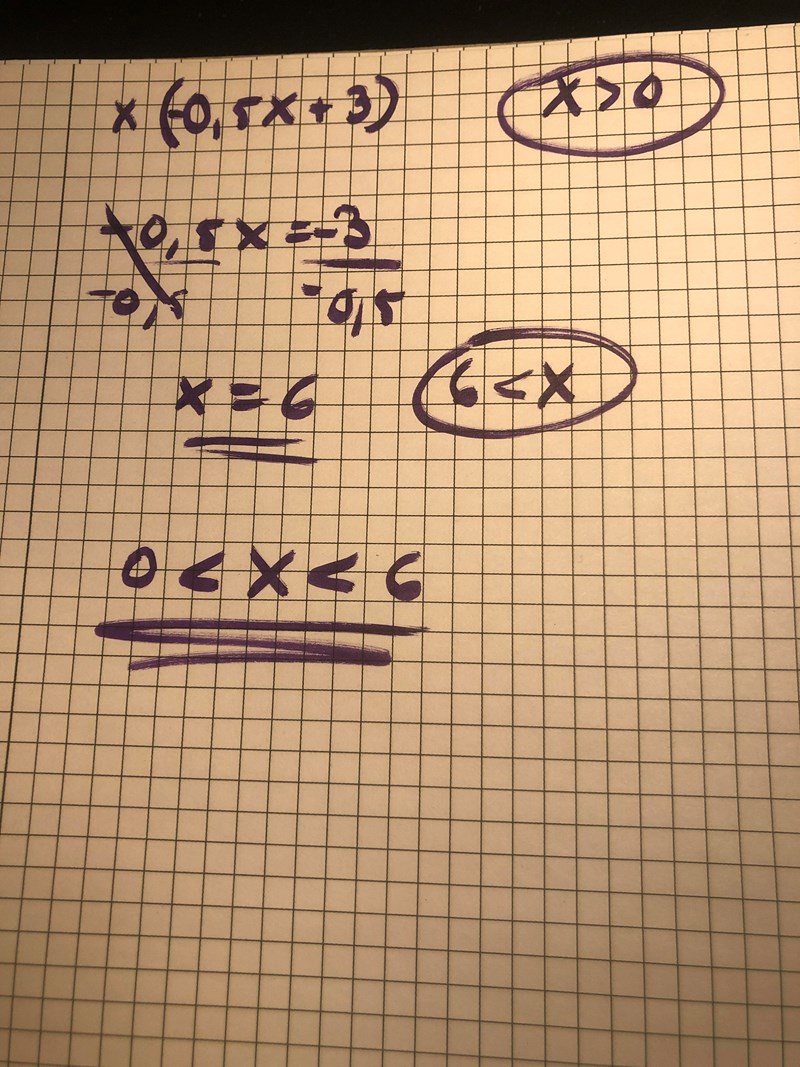 x (-0,5x + 3) x > 0
-0,5 x = -3
-0,5 -0,5
x = 6 6 < x
0 < x < 6